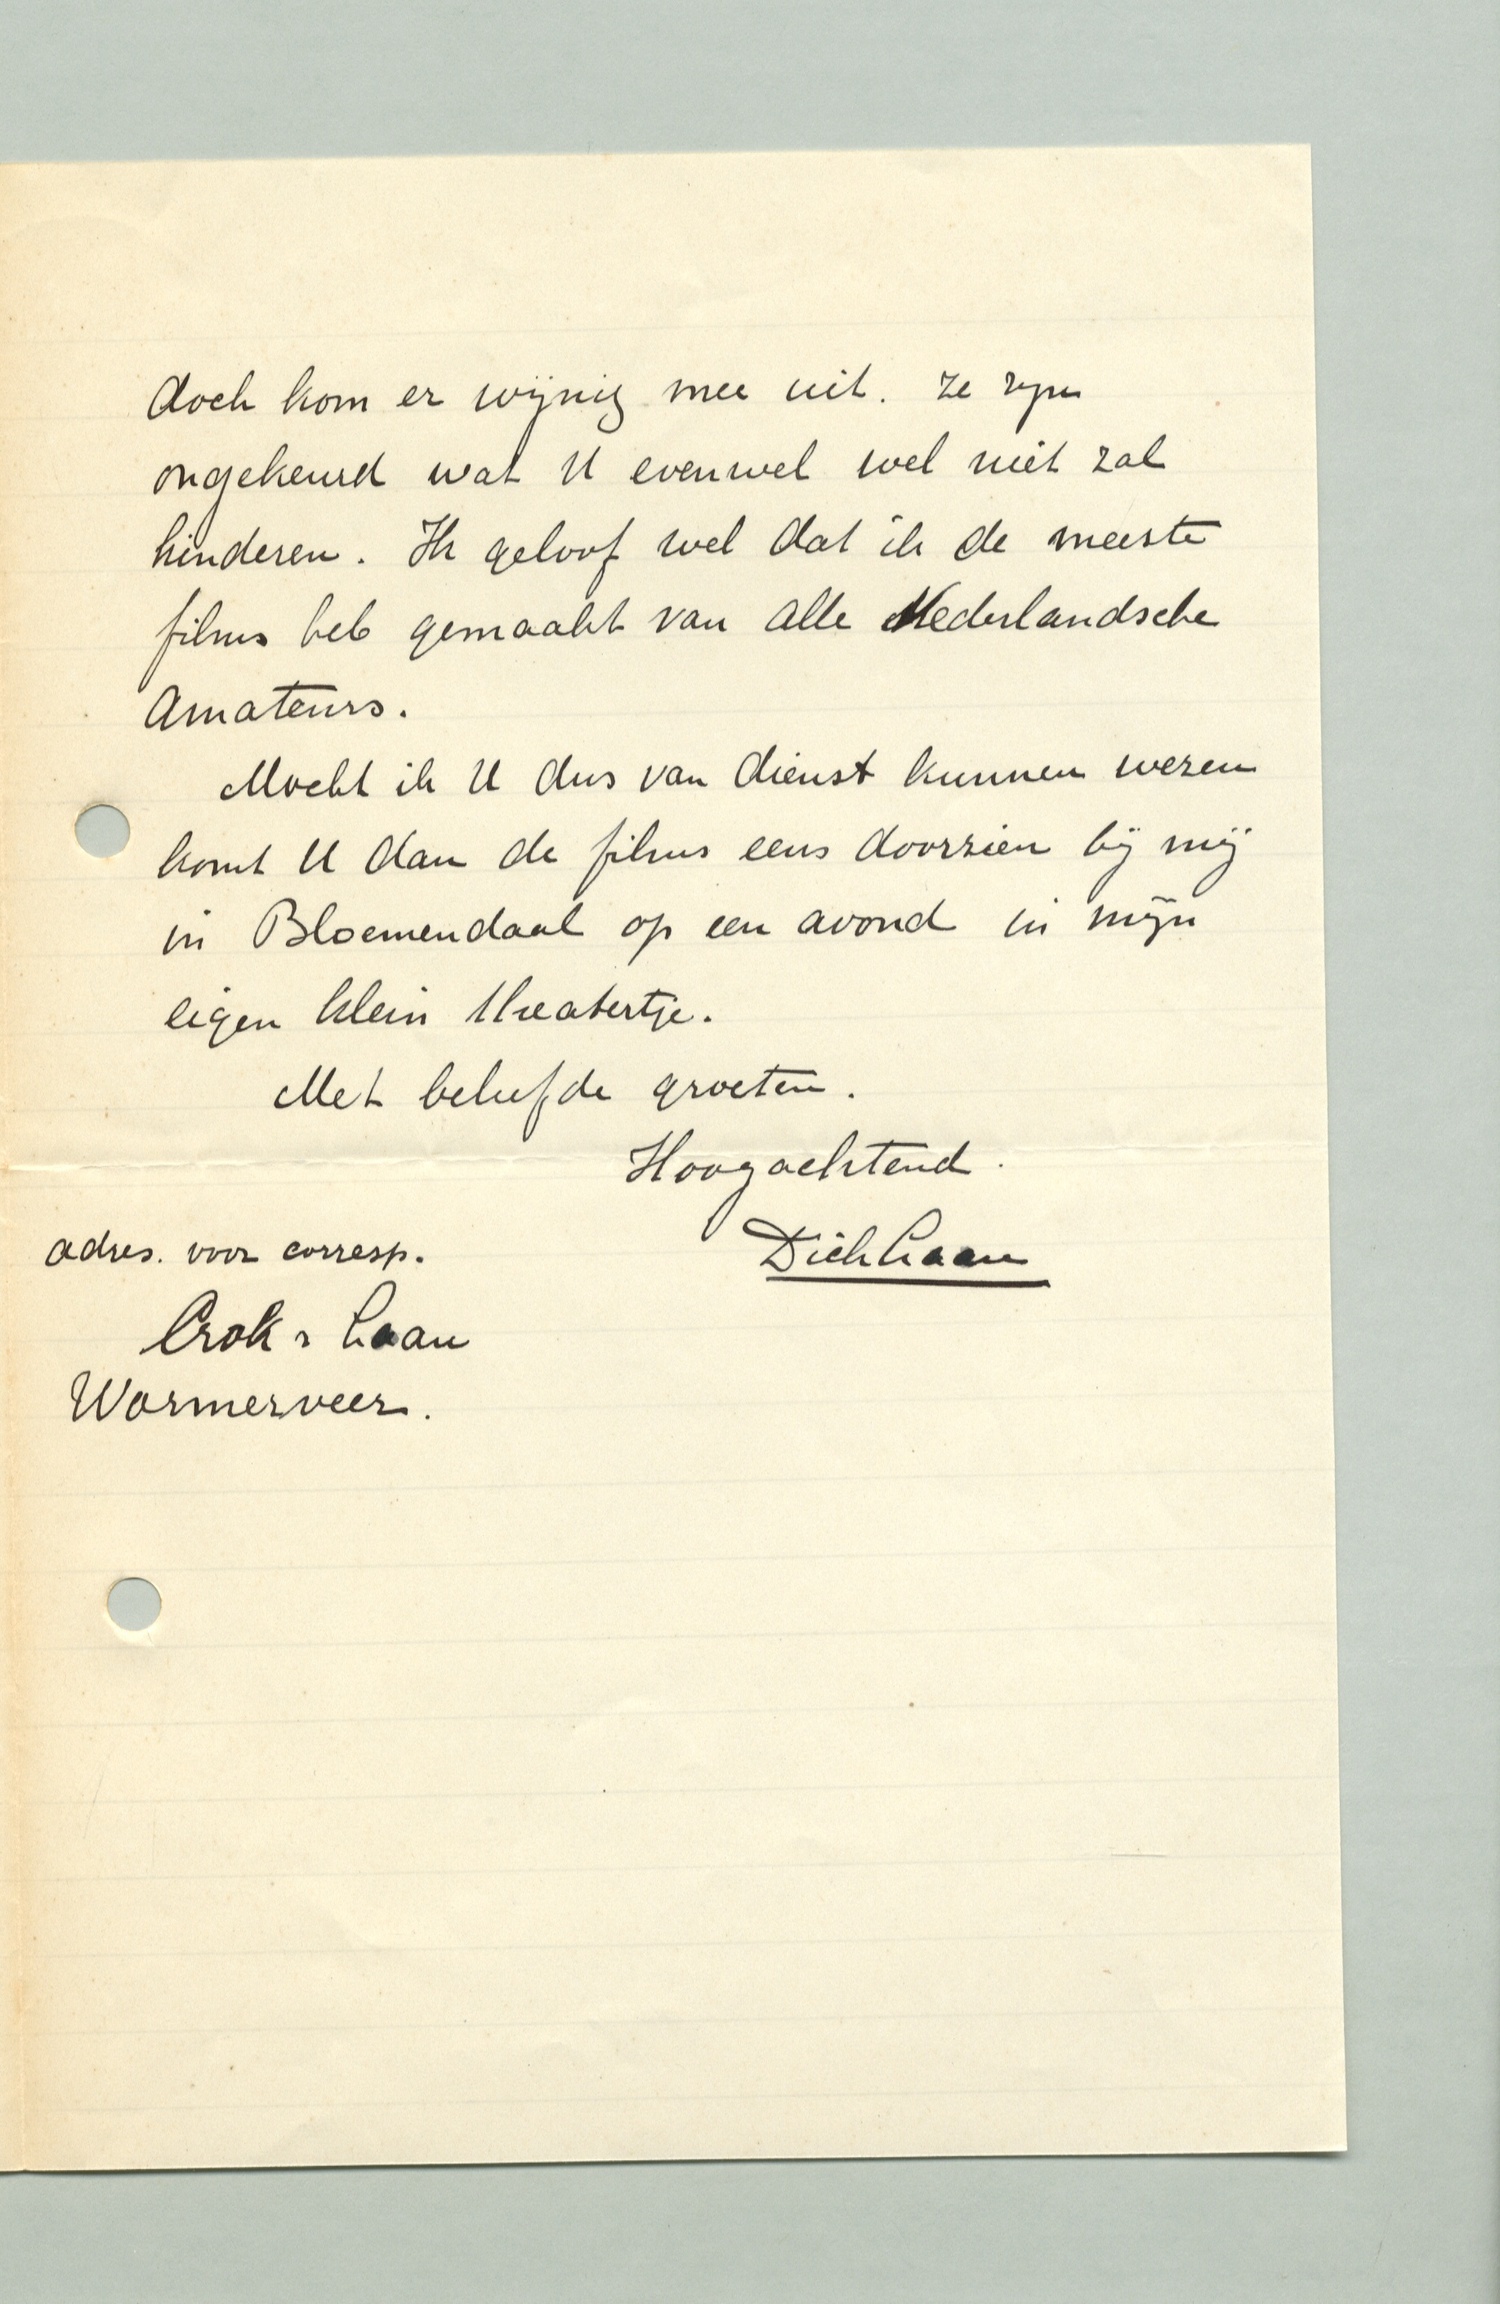 doch kom er wijnig mee uit. Ze zijn
ongekeurd wat U evenwel wel niet zal
hinderen. Ik geloof wel dat ik de meeste
films heb gemaakt van alle Nederlandsche
Amateurs.
Mocht ik U dus van dienst kunnen wezen
komt U dan de films eens doorzien bij mij
in Bloemendaal op een avond in mijn
eigen klein theatertje.
Met beleefde groeten.
Hoogachtend.
Dick Laan
adres. voor corresp.
Crok & Laan
Wormerveer.